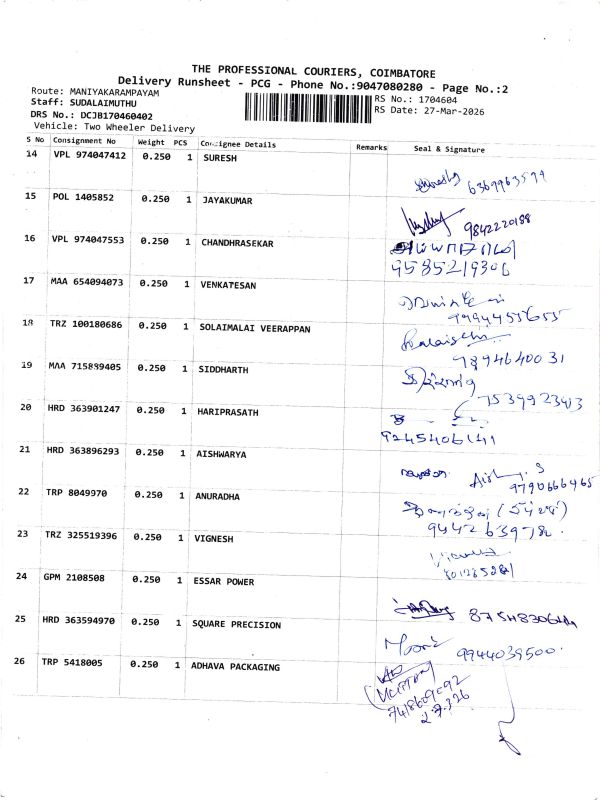 THE PROFESSIONAL COURIERS, COIMBATORE
Delivery Runsheet - PCG - Phone No.:9047080280 - Page No.:2
Route: MANIYAKARAMPAYAM
RS No.: 1704604
Staff: SUDALAIMUTHU
RS Date: 27-Mar-2026
DRS No.: DCJB170460402
Vehicle: Two Wheeler Delivery
S No Consignment No Weight PCS Consignee Details Remarks Seal & Signature
14 VPL 974047412 0.250 1 SURESH
6369963599
15 POL 1405852 0.250 1 JAYAKUMAR
9842220188
16 VPL 974047553 0.250 1 CHANDHRASEKAR
9585219306
17 MAA 654094073 0.250 1 VENKATESAN
9994455655
18 TRZ 100180686 0.250 1 SOLAIMALAI VEERAPPAN
9894640031
19 MAA 715889405 0.250 1 SIDDHARTH
7539923943
20 HRD 363901247 0.250 1 HARIPRASATH
9245406141
21 HRD 363896293 0.250 1 AISHWARYA
9790666465
22 TRP 8049970 0.250 1 ANURADHA
9442639782
23 TRZ 325519396 0.250 1 VIGNESH
24 GPM 2108508 0.250 1 ESSAR POWER
25 HRD 363594970 0.250 1 SQUARE PRECISION
9944039500
26 TRP 5418005 0.250 1 ADHAVA PACKAGING
7418609092
27.3.26